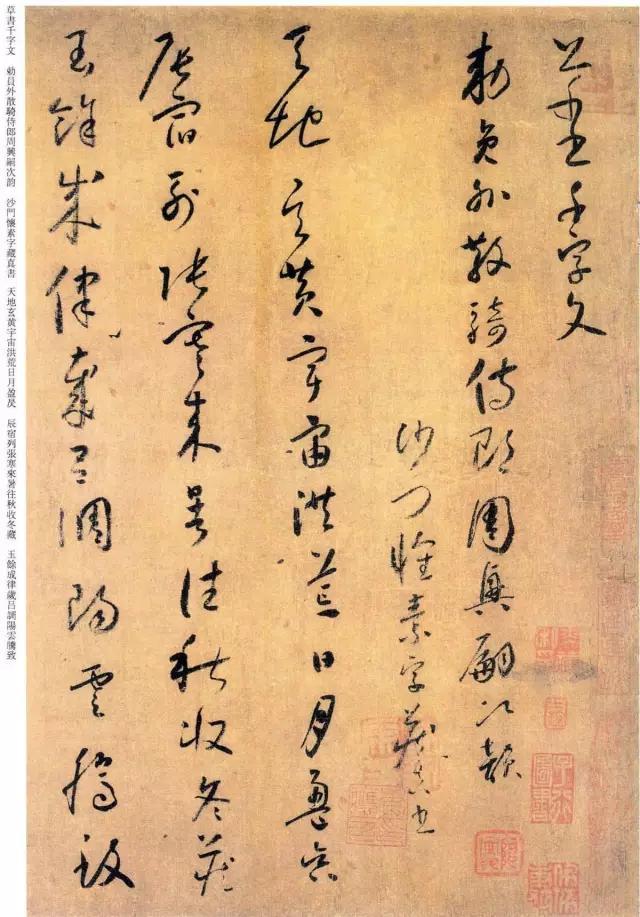 草書千字文
勅員外散騎侍郎周興嗣次韻
沙門懷素字藏真書
天地玄黃宇宙洪荒日月盈昃
辰宿列張寒來暑往秋收冬藏
玉餘成律歲呂調陽雲騰致
草書千字文 勅員外散騎侍郎周興嗣次韵 沙門懷素字藏真書 天地玄黃宇宙洪荒日月盈昃 辰宿列張寒來暑往秋收冬藏 玉餘成律歲呂調陽雲騰致